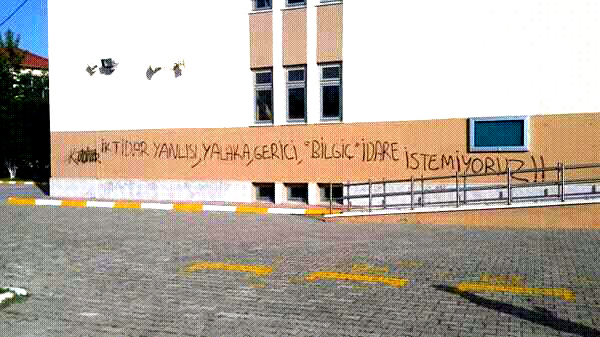 İKTİDAR YANLISI, YALAKA, GERİCİ, "BİLGİÇ" İDARE İSTEMİYORUZ!!